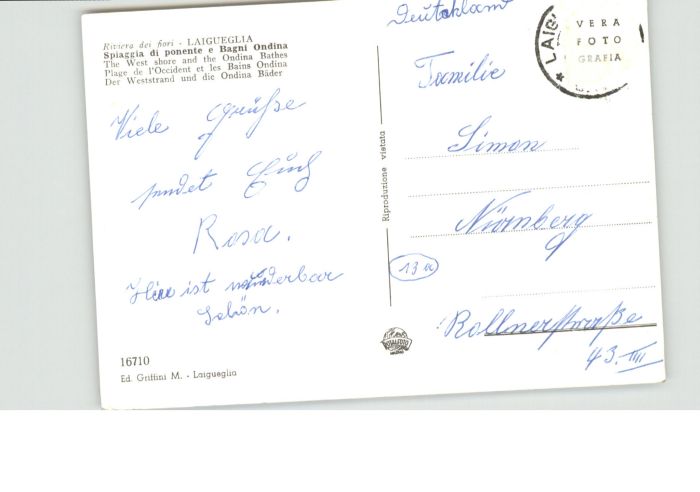 Riviera dei fiori - LAIGUEGLIA
Spiaggia di ponente e Bagni Ondina
The West shore and the Ondina Bathes
Plage de l'Occident et les Bains Ondina
Der Weststrand und die Ondina Bäder
Viele Grüße
sendet Euch
Rosa.
Hier ist wunderbar
schön.
16710
Ed. Griffini M. - Laigueglia
Riproduzione vietata
Deutschland
LAIG
VERA
FOTO
GRAFIA
Familie
Simon
Nürnberg
13a
Rollnerstraße
43 IIII